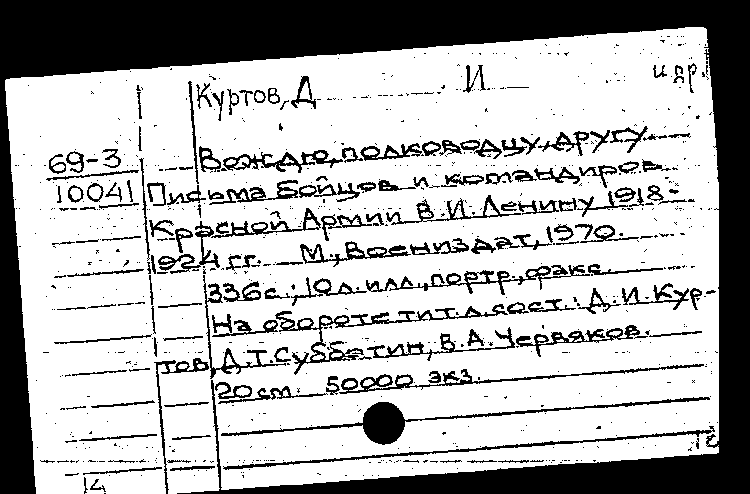 Куртов, Д И и др.
69-3 Вождю, полководцу, другу.
10041 Письма бойцов и командиров
Красной Армии В.И. Ленину 1918-
1924 гг. М., Воениздат, 1970.
336с.; 10 л. илл., портр., факс.
На обороте тит. л. сост.: Д. И. Кур-
тов, Д.Т. Субботин, В.А. Червяков.
20 см. 50000 экз.
14